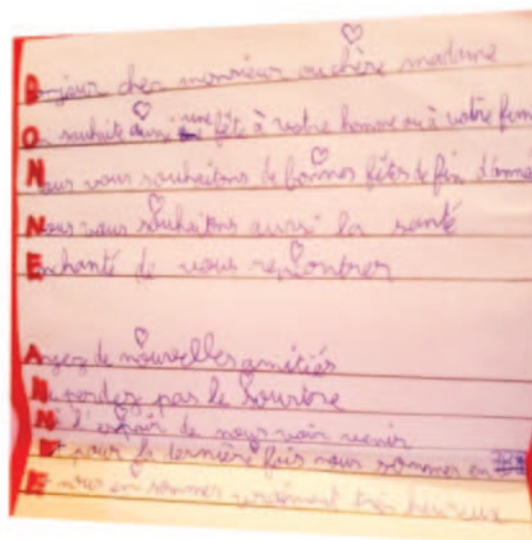 Bonjour cher monsieur ou chère madame
On souhaite aussi une fête à votre homme ou à votre fem
Nous vous souhaitons de bonnes fêtes de fin d'anné
Nous vous souhaitons aussi la santé
Enchanté de vous rencontrer
Ayez de nouvelles amitiés
Ne perdez pas le sourire
Ni l'espoir de nous voir venir
Et pour la dernière fois nous sommes en
Et nous en sommes vraiment très heureux